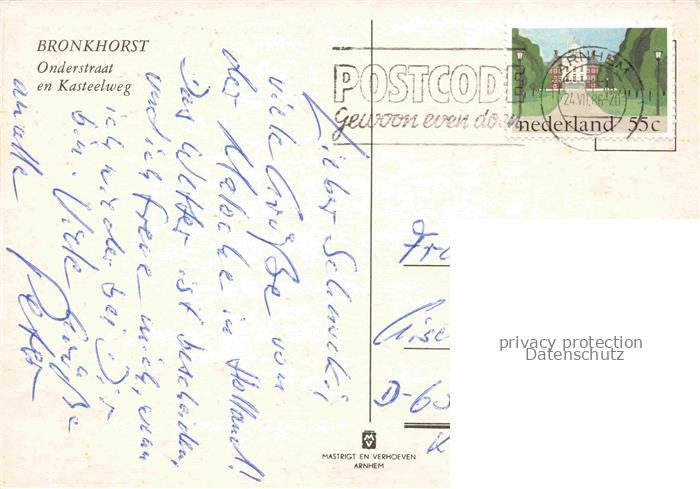 BRONKHORST
Onderstraat
en Kasteelweg
Lieber Schnucki,
viele Grüße von
der Klatsche in Holland!
Das Wetter ist bescheiden,
und ich freue mich, wenn
ich wieder bei Dir
bin. Viele Grüße
an alle
Peter
POSTCODE
gewoon even doen
ARNHEM
24.VII.86-20
nederland 55c
D-63
K
privacy protection
Datenschutz
MASTRIGT EN VERHOEVEN
ARNHEM